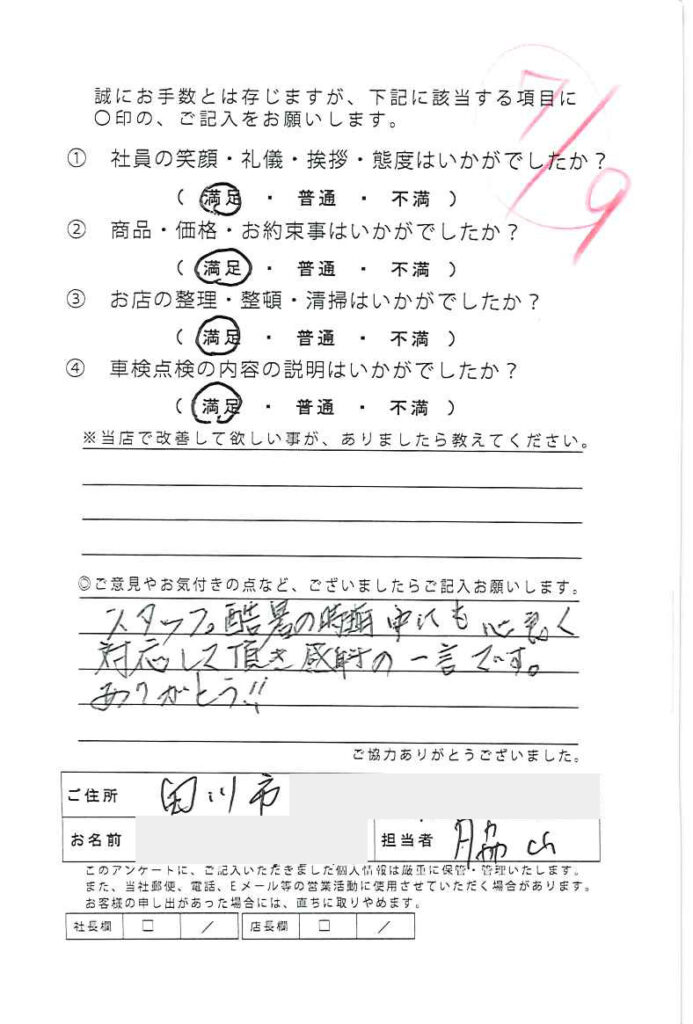 7/9
誠にお手数とは存じますが、下記に該当する項目に
〇印の、ご記入をお願いします。
① 社員の笑顔・礼儀・挨拶・態度はいかがでしたか？
( 満足 ・ 普通 ・ 不満 )
② 商品・価格・お約束事はいかがでしたか？
( 満足 ・ 普通 ・ 不満 )
③ お店の整理・整頓・清掃はいかがでしたか？
( 満足 ・ 普通 ・ 不満 )
④ 車検点検の内容の説明はいかがでしたか？
( 満足 ・ 普通 ・ 不満 )
※当店で改善して欲しい事が、ありましたら教えてください。
◎ご意見やお気付きの点など、ございましたらご記入お願いします。
スタッフ。酷暑の時節 中にも 心良く
対応して頂き感謝の一言です。
ありがとう!!
ご協力ありがとうございました。
ご住所 田川市
お名前 担当者 脇山
このアンケートに、ご記入いただきました個人情報は厳重に保管・管理いたします。
また、当社郵便、電話、Eメール等の営業活動に使用させていただく場合があります。
お客様の申し出があった場合には、直ちに取りやめます。
社長欄 □ / 店長欄 □ /